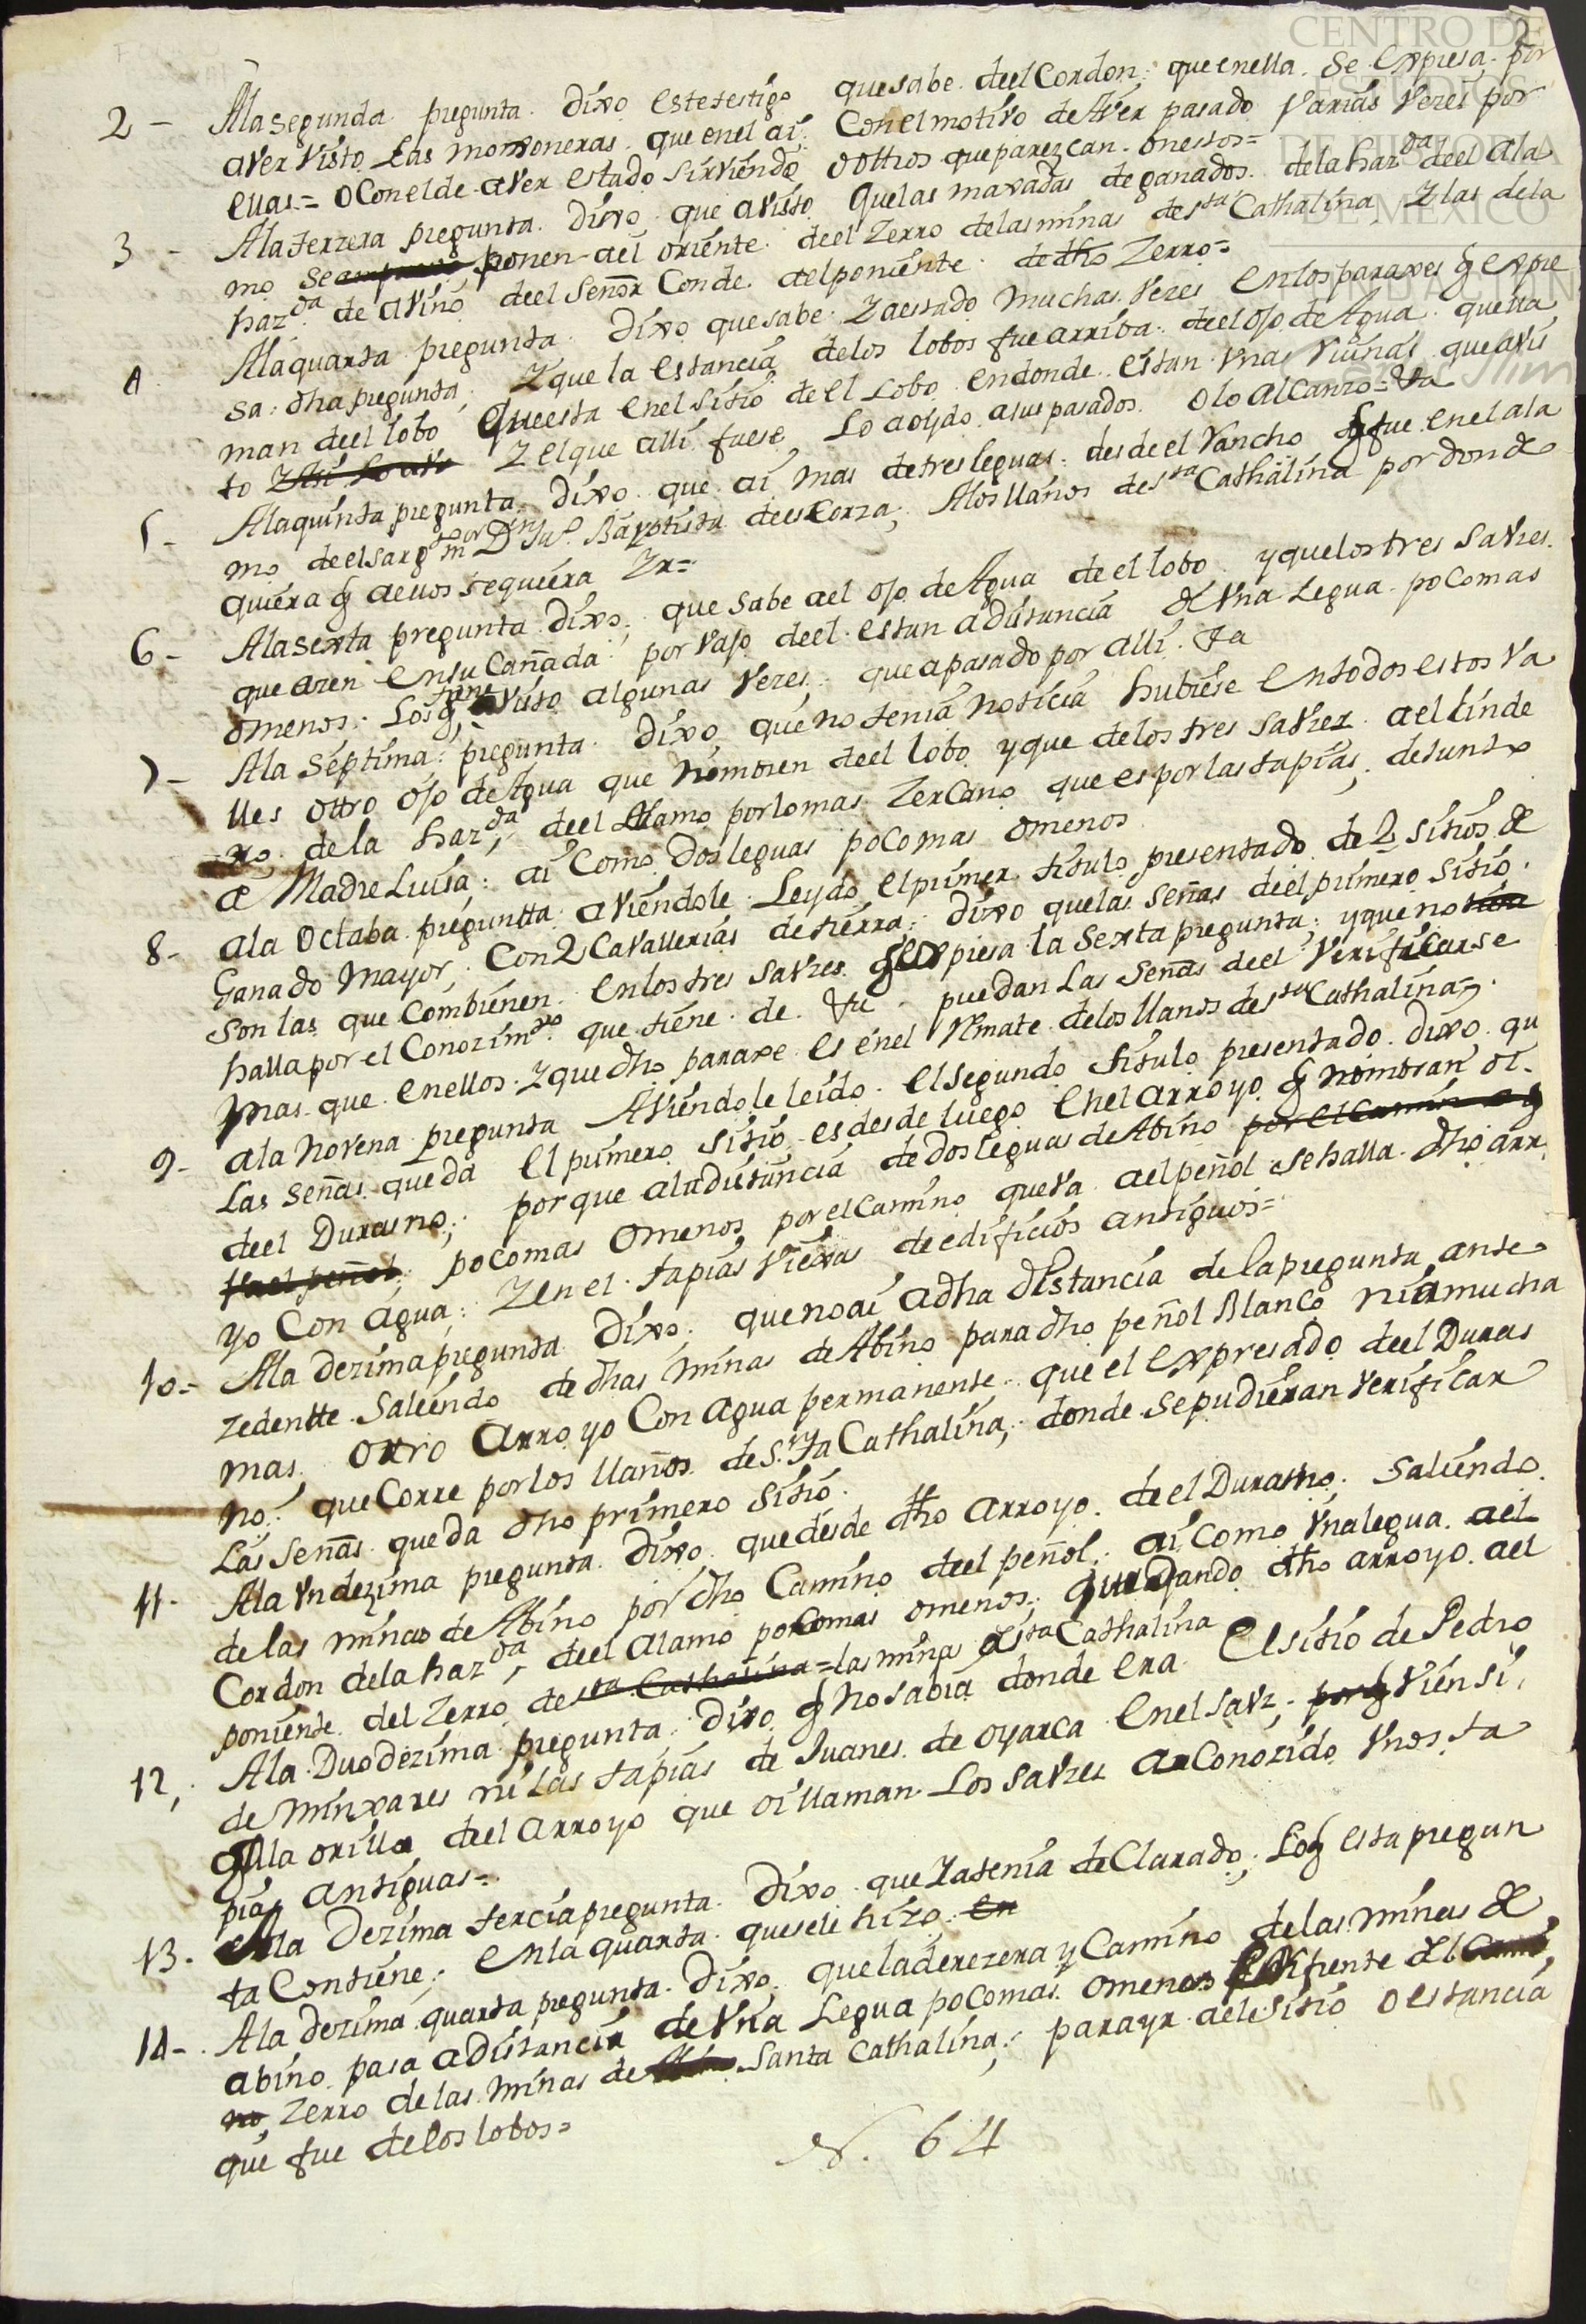 CENTRO DE
ESTUDIOS
DE HISTORIA
DE MEXICO
FUNDACION
2
2 - Ala segunda pregunta. Dixo este testigo que sabe deel Cordon; que enella. Se. Expresa. por
aver visto Las moxoneras. que enel ai. Conel motivo de Aver pasado varias vezes por
ellas = O Conelde aver estado sirviendo o ottros que parezcan. onestos =
3 - Ala terzera pregunta. Dixo que a visto que las maxadas de ganados. dela hazda deel Ala
mo se ponen ael oriente. deel Zerro delas minas desta Cathalina, Z las dela
hazda de avino deel Señor Conde. alponiente. de dho Zerro =
4 Ala quarta pregunta. Dixo que sabe. Z a estado muchas vezes En los paraxes q expre
sa. dha pregunta, Z que la estancia delos lobos fue arriva. deel Ojo de Agua. que lla
man deel lobo que esta enel sitio de el Lobo. en donde. estan unas ruinas que a vis
to Z el que alli fuese Lo a oydo a sus pasados. O lo alcanzo =
5 - Ala quinta pregunta. Dixo. que. ai mas de tres leguas. desde el Rancho q fue. enel ala
mo deel sargto mor Dn Juo Baptista de es Corza, Alos llanos desta Cathalina por donde
quiera q aellos se quiera Zr =
6 - Ala sexta pregunta. Dixo; que sabe ael Ojo de Agua de el lobo. y que los tres savzes.
que azen en su Cañada. por vajo deel. estan a distancia de una Legua. poComas
omenos. Los q tiene visto algunas vezes. que a pasado por alli.
7 - Ala septima: pregunta. Dixo, que no tenia noticia hubiese En todos estos va
lles ottro Ojo de Agua que nombren deel lobo. y que delos tres savzez. ael Linde
ro dela hazda, deel Alamo por lo mas Zercano que es por las tapias, de junto
a Madre Luisa: ai Como Dos leguas poComas omenos
8 - ala Octaba. preguntta. aviendole. Leydo. el primer titulo presentado de 2 sitios de
Ganado Mayor, Con 2 Cavallerias de tierra; Dixo que las señas deel primero sitio.
son las que Combienen. en los tres savzes. q expresa la sexta pregunta; y que no
halla por el Conozimto. que tiene. de. puedan Las señas deel Verificarse
mas. que. enellos. Z que dho paraxe es enel Remate delos llanos desta Cathalina =
9 - ala Novena pregunta Aviendole leido. El segundo titulo presentado. dixo. qu
Las señas que da el primero sitio. es desde luego. enel arroyo q nombran oi.
deel Durasno; porque ala distancia de dos leguas de Abino por el Camin
va el peñol; poComas Omenos por el Camino que va ael peñol se halla. dho arr
yo Con agua; Z en el. tapias viexas de edificios antiguos =
10 = Ala dezima pregunta Dixo. que no ai a dha distancia dela pregunta ante
zedentte. Saliendo de dhas minas de Abino para dho peñol Blanco ni a mucha
mas. Otro Arroyo Con agua permanente. que el expresado deel Duras
no; que Corre por los llanos de Sta Cathalina; donde se pudieran verificar
Las señas que da dho primero sitio.
11 - Ala undezima pregunta. Dixo, que desde dho Arroyo. de el Durasno. saliendo.
de las minas de Abino por dho Camino deel peñol; ai Como una legua. ael
Cordon dela hazda, deel Alamo poComas omenos; quedando dho arroyo. ael
poniente. del Zerro desta Cathalina = las minas desta Cathalina
12, Ala Duodezima pregunta. Dixo q no sabia donde era El sitio de Pedro
de Minxares ni las tapias de Juanes de Oyarca Enel savz, porq vien si,
q a la orilla deel Arroyo que oi llaman Los savzes a Conozido unas ta
pias antiguas =
13. Ala Dezima tercia pregunta. Dixo que Ya tenia deClarado; Loq esta pregun
ta Contiene; enla quarta. que sele hizo. en
14 - Ala dezima quarta pregunta. Dixo; que la derezera y Camino delas minas de
abino. pasa a distancia de Una Legua poComas. Omenos frente del Camino
no Zerro de las minas de Santa Cathalina; para yr ael sitio o estancia
que fue delos lobos =
N. 64